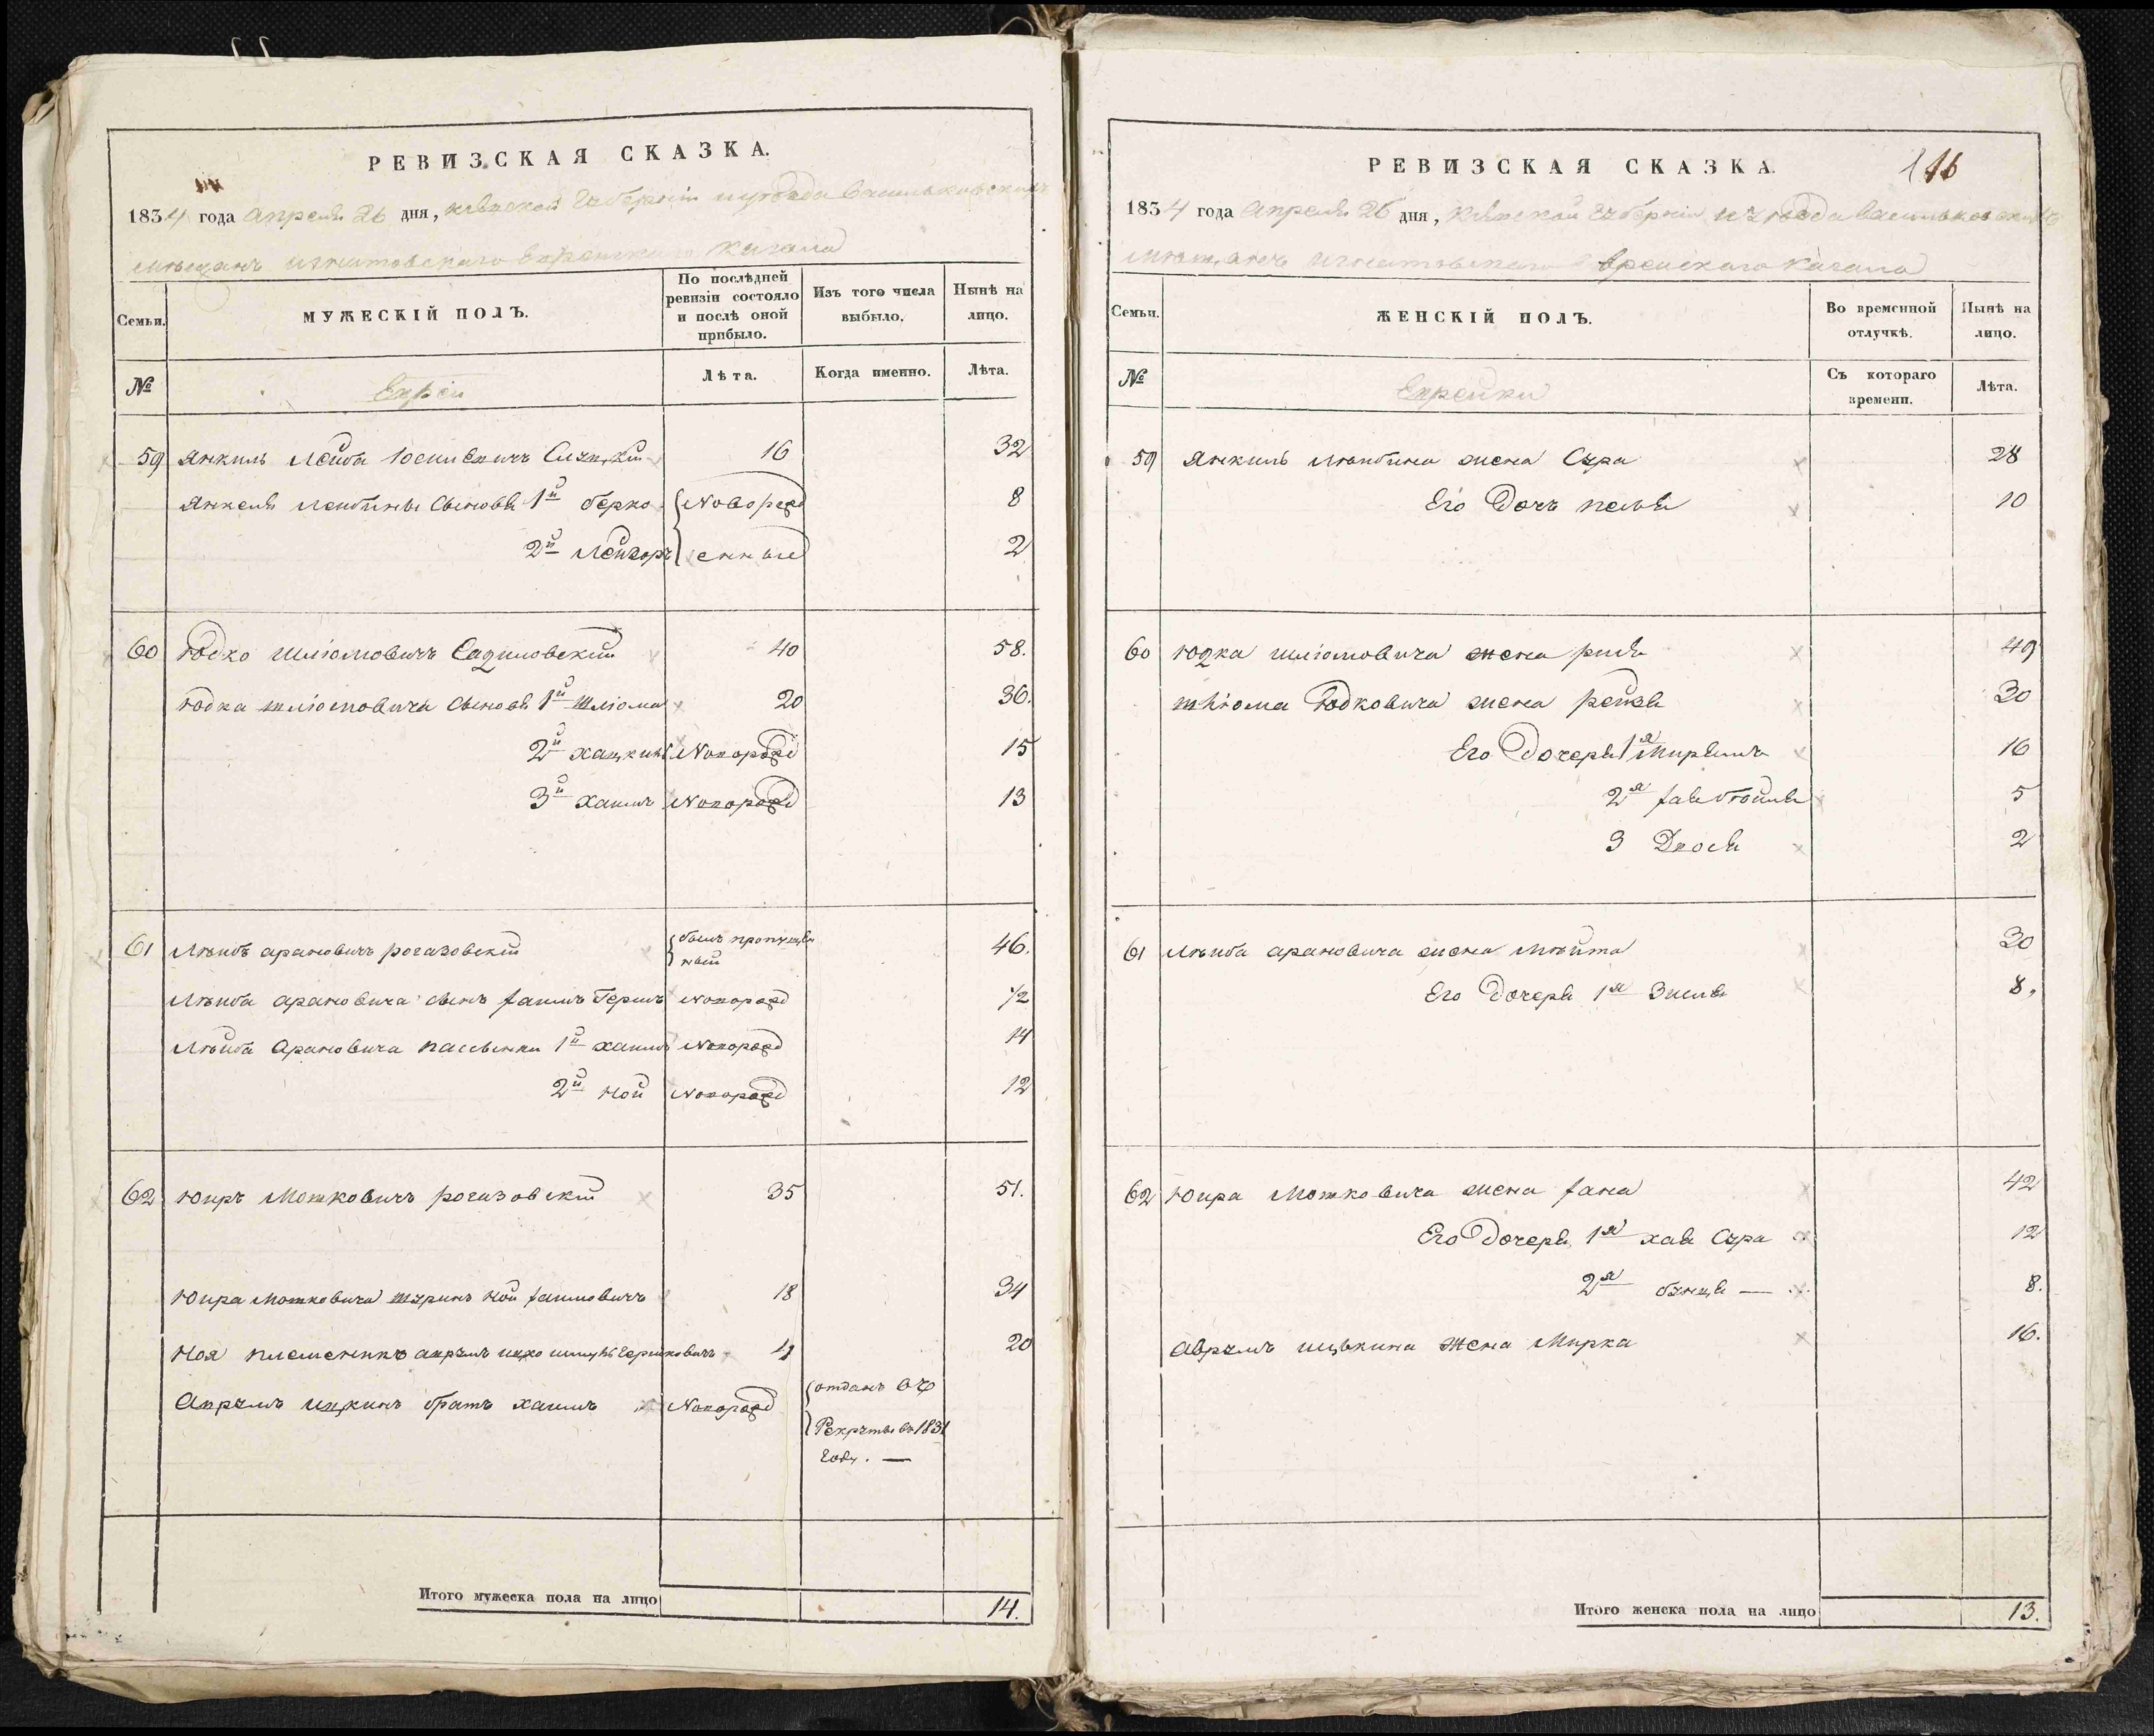 РЕВИЗСКАЯ СКАЗКА.
1834 года Апреля 26 дня, Киевской Губернии и уезда Васильковскихъ
мещанъ Игнатовскаго Еврейскаго Кагала
Семьи.
МУЖЕСКІЙ ПОЛЪ.
По послѣдней ревизіи состояло и послѣ оной прибыло.
Изъ того числа выбыло.
Нынѣ на лицо.
№
Евреи
Лѣта.
Когда именно.
Лѣта.
59 Янкиль Лейба 16 32
Янкеля Лейбины сыновья 1й Берко Новорожд 8
2й Лейзоръ енные 2
60 Юдко Шліомовичъ Садиловскій 40 58.
Юдка Шліомовича сыновья 1й Шліома 20 36.
2й Хацкинъ Новорожд 15
3й Хаимъ Новорожд 13
61 Лѣибъ Арановичъ Рогазовскій былъ пропущен 46.
ный
Лѣиба Арановича сынъ Гершъ Новорожд 1/2
Лѣйба Арановича пасынки 1й Хаимъ Новорожд 14
2й Ной Новорожд 12
62 Юиръ Мошковичъ Рогазовскій 35 51.
Юира Мошковича шуринъ Ной 18 34
Ноя племенникъ Аврумъ Ицко 4 20
Аврумъ Ицкинъ братъ Хаимъ Новорожд отданъ въ
Рекруты въ 1831
году. —
Итого мужеска пола на лицо 14.
116
РЕВИЗСКАЯ СКАЗКА.
1834 года Апреля 26 дня, Кіевской Губерніи и уезда Васильковскихъ
мѣщанъ Игнатовскаго Еврейскаго Кагала
Семьи.
ЖЕНСКІЙ ПОЛЪ.
Во временной отлучкѣ.
Нынѣ на лицо.
№
Еврейки
Съ котораго времени.
Лѣта.
59 Янкиль Лѣибина жена Сура 28
Его Дочъ Песья 10
60 Юдка Шліомовича жена 49
Шліома Юдковича жена Рейзя 30
Его Дочеря 1я Мирьямъ 16
2я 5
3 Двося 2
61 Лѣиба Арановича жена 30
Его Дочеря 1я 8.
62 Юира Мошковича жена 42
Его Дочеря 1я Хая Сура 12
2я Бунця — 8.
Аврумъ Ицькина жена Мирка 16.
Итого женска пола на лицо 13.